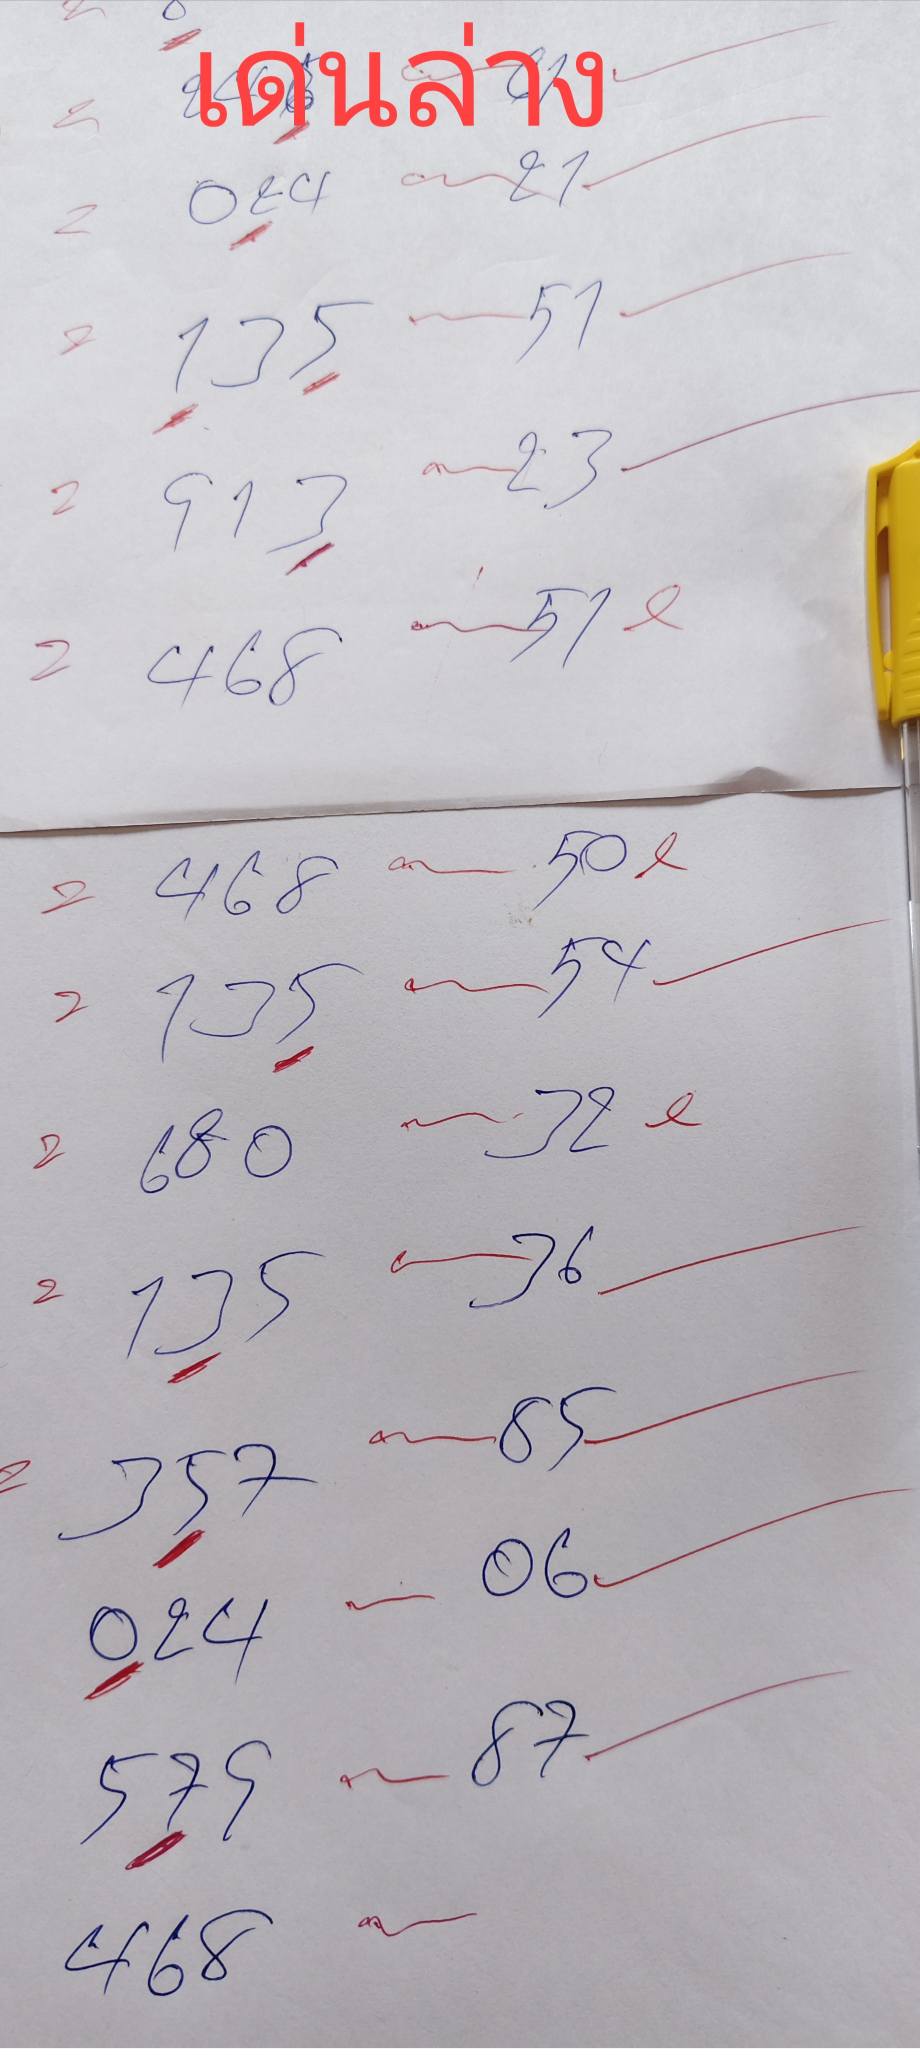 เด่นล่าง
024 21
135 51
913 23
468 51
468 50
135 54
680 32
135 36
357 85
024 06
579 87
468